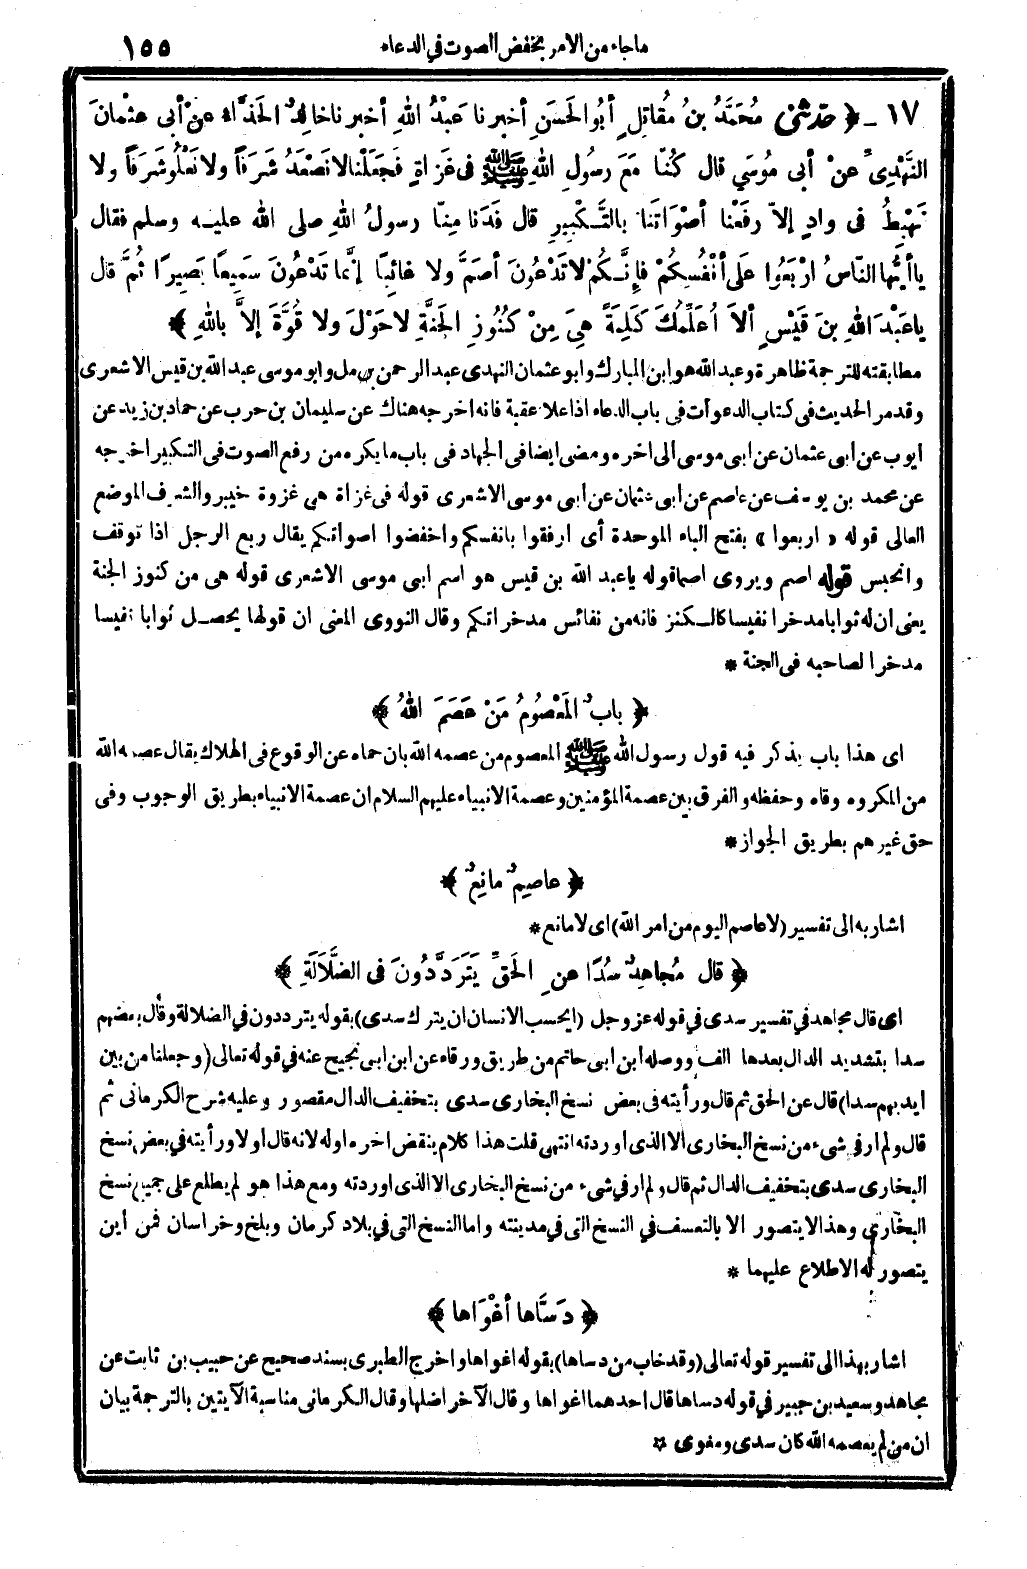 ماجاء من الامر بخفض الصوت في الدعاء ١٥٥
١٧ - ﴿ حدّثني مُحَمَّدُ بنُ مُقاتِلٍ أبُو الحَسَنِ أخبرنا عَبْدُ اللهِ أخبرنا خالِدٌ الحَذَّاءُ عنْ أبى عثْمانَ
النَّهْدِىِّ عنْ أبى مُوسَي قال كُنَّا مَعَ رسُولِ اللهِ ﷺ فى غَزاةٍ فَجَعَلْنا لا نَصْعَدُ شَرَفاً ولا نَعْلُو شَرَفاً ولا
نَهْبِطُ فى وادٍ إلاّ رفَعْنا أصْوَاتَنا بالتَّكْبِيرِ قال فَدَنا مِنّا رسولُ اللهِ صلى الله عليه وسلم فقال
ياأيُّها النّاسُ ارْبَعُوا عَلى أنْفُسِكُمْ فإنَّكُمْ لا تَدْعُونَ أصَمَّ ولا غائِبًا إنَّما تَدْعُونَ سَمِيعًا بَصِيرًا ثُمَّ قال
ياعَبْدَ اللهِ بنَ قَيْسٍ ألاَ أُعَلِّمُكَ كَلِمَةً هِيَ مِنْ كُنُوزِ الجَنَّةِ لاحَوْلَ ولا قُوَّةَ إلاَّ باللهِ ﴾
مطابقته للترجمة ظاهرة وعبد الله هو ابن المبارك وابو عثمان النهدى عبد الرحمن بن مل وابو موسى عبد الله بن قيس الاشعرى
وقد مر الحديث فى كتاب الدعوات فى باب الدعاء اذا علا عقبة فانه اخرجه هناك عن سليمان بن حرب عن حماد بن زيد عن
ايوب عن أبى عثمان عن ابى موسى الى اخره ومضى ايضا فى الجهاد فى باب ما يكره من رفع الصوت فى التكبير اخرجه
عن محمد بن يوسف عن عاصم عن ابى عثمان عن ابى موسى الاشعرى قوله فى غزاة هى غزوة خيبر والشرف الموضع
العالى قوله «اربعوا» بفتح الباء الموحدة أى ارفقوا بانفسكم واخفضوا اصواتكم يقال ربع الرجل اذا توقف
وانحبس قوله اصم ويروى اصما قوله ياعبد الله بن قيس هو اسم ابى موسى الاشعرى قوله هى من كنوز الجنة
يعنى ان له ثوابا مدخرا نفيسا كالكنز فانه من نفائس مدخراتكم وقال النووى المعنى ان قولها يحصل ثوابا نفيسا
مدخرا لصاحبه فى الجنة *
﴿ بابٌ المَعْصُومُ مَنْ عَصَمَ اللهُ ﴾
اى هذا باب يذكر فيه قول رسول الله ﷺ المعصوم من عصمه الله بان حماه عن الوقوع فى الهلاك يقال عصمه الله
من المكروه وقاه وحفظه والفرق بين عصمة المؤمنين وعصمة الانبياء عليهم السلام ان عصمة الانبياء بطريق الوجوب وفى
حق غيرهم بطريق الجواز *
﴿ عاصِمٌ مانِعٌ ﴾
اشار به الى تفسير (لا عاصم اليوم من امر الله) اى لا مانع *
﴿ قال مُجاهِدٌ سُدًا عنِ الحَقِّ يَتَرَدَّدُونَ فى الضَّلاَلَةِ ﴾
اى قال مجاهد في تفسير سدى في قوله عز وجل (ايحسب الانسان ان يترك سدى) بقوله يترددون في الضلالة وقال بعضهم
سدا بتشديد الدال بعدها الف ووصله ابن ابى حاتم من طريق ورقاء عن ابن ابى نجيح عنه في قوله تعالى (وجعلنا من بين
ايديهم سدا) قال عن الحق ثم قال ورأيته فى بعض نسخ البخارى سدى بتخفيف الدال مقصور وعليه شرح الكرمانى ثم
قال ولم ار في شىء من نسخ البخارى الا الذى اوردته انتهى قلت هذا كلام ينقض اخره اوله لانه قال اولا ورأيته في بعض نسخ
البخارى سدى بتخفيف الدال ثم قال ولم ار في شىء من نسخ البخارى الا الذى اوردته ومع هذا هو لم يطلع على جميع نسخ
البخارى وهذا لا يتصور الا بالتعسف في النسخ التى في مدينته واما النسخ التى في بلاد كرمان وبلخ وخراسان فمن اين
يتصور له الاطلاع عليهما *
﴿ دَسَّاها أغْوَاها ﴾
اشار بهذا الى تفسير قوله تعالى (وقد خاب من دساها) بقوله اغواها واخرج الطبرى بسند صحيح عن حبيب بن ثابت عن
مجاهد وسعيد بن جبير في قوله دساها قال احدهما اغواها وقال الآخر اضلها وقال الكرمانى مناسبة الآيتين بالترجمة بيان
ان من لم يعصمه الله كان سدى ومغوى *